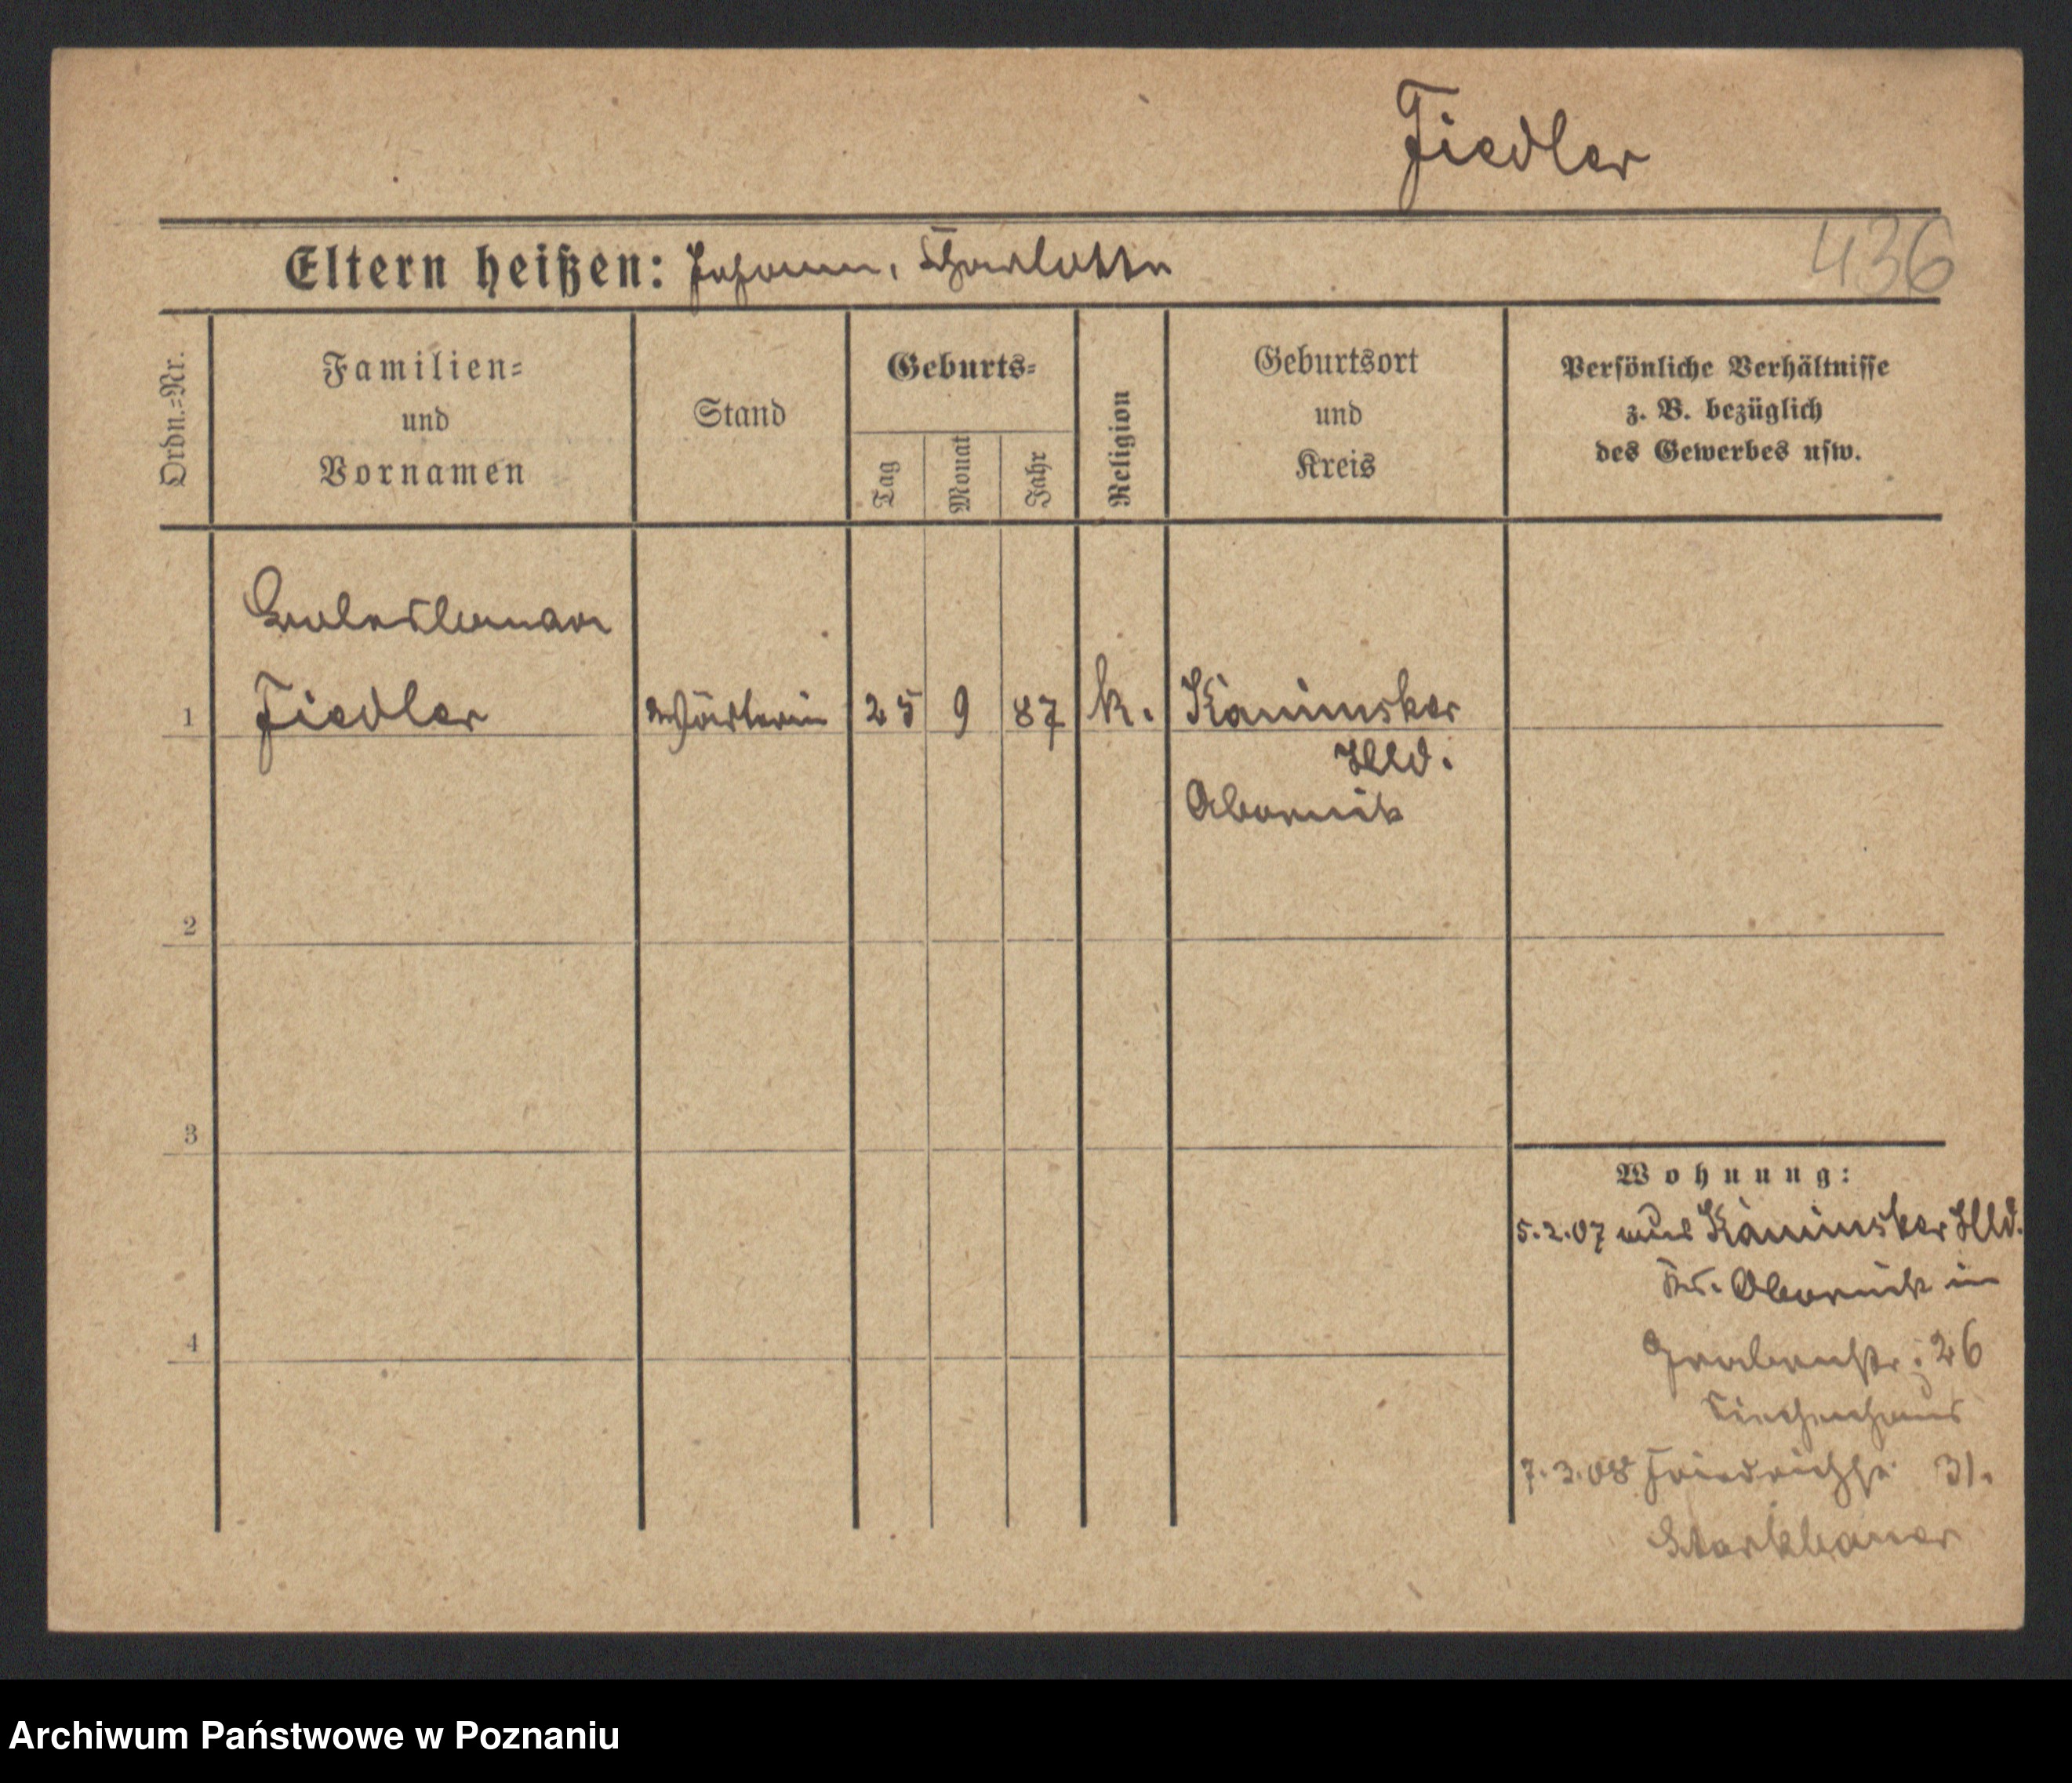 Fiedler
436
Eltern heißen: Johann, Charlotte
Ordn.=Nr.
Familien=
und
Vornamen
Stand
Geburts=
Tag
Monat
Jahr
Religion
Geburtsort
und
Kreis
Persönliche Verhältnisse
z. B. bezüglich
des Gewerbes usw.
1
Fiedler
Wärterin
25
9
87
k.
Kaminsker
Hld.
Obornik
2
3
4
Wohnung:
5.2.07 aus Kaminsker Hld.
Kr. Obornik in
Grabenstr. 26
Siechenhaus
7.3.08 Friedrichstr. 31.
Archiwum Państwowe w Poznaniu